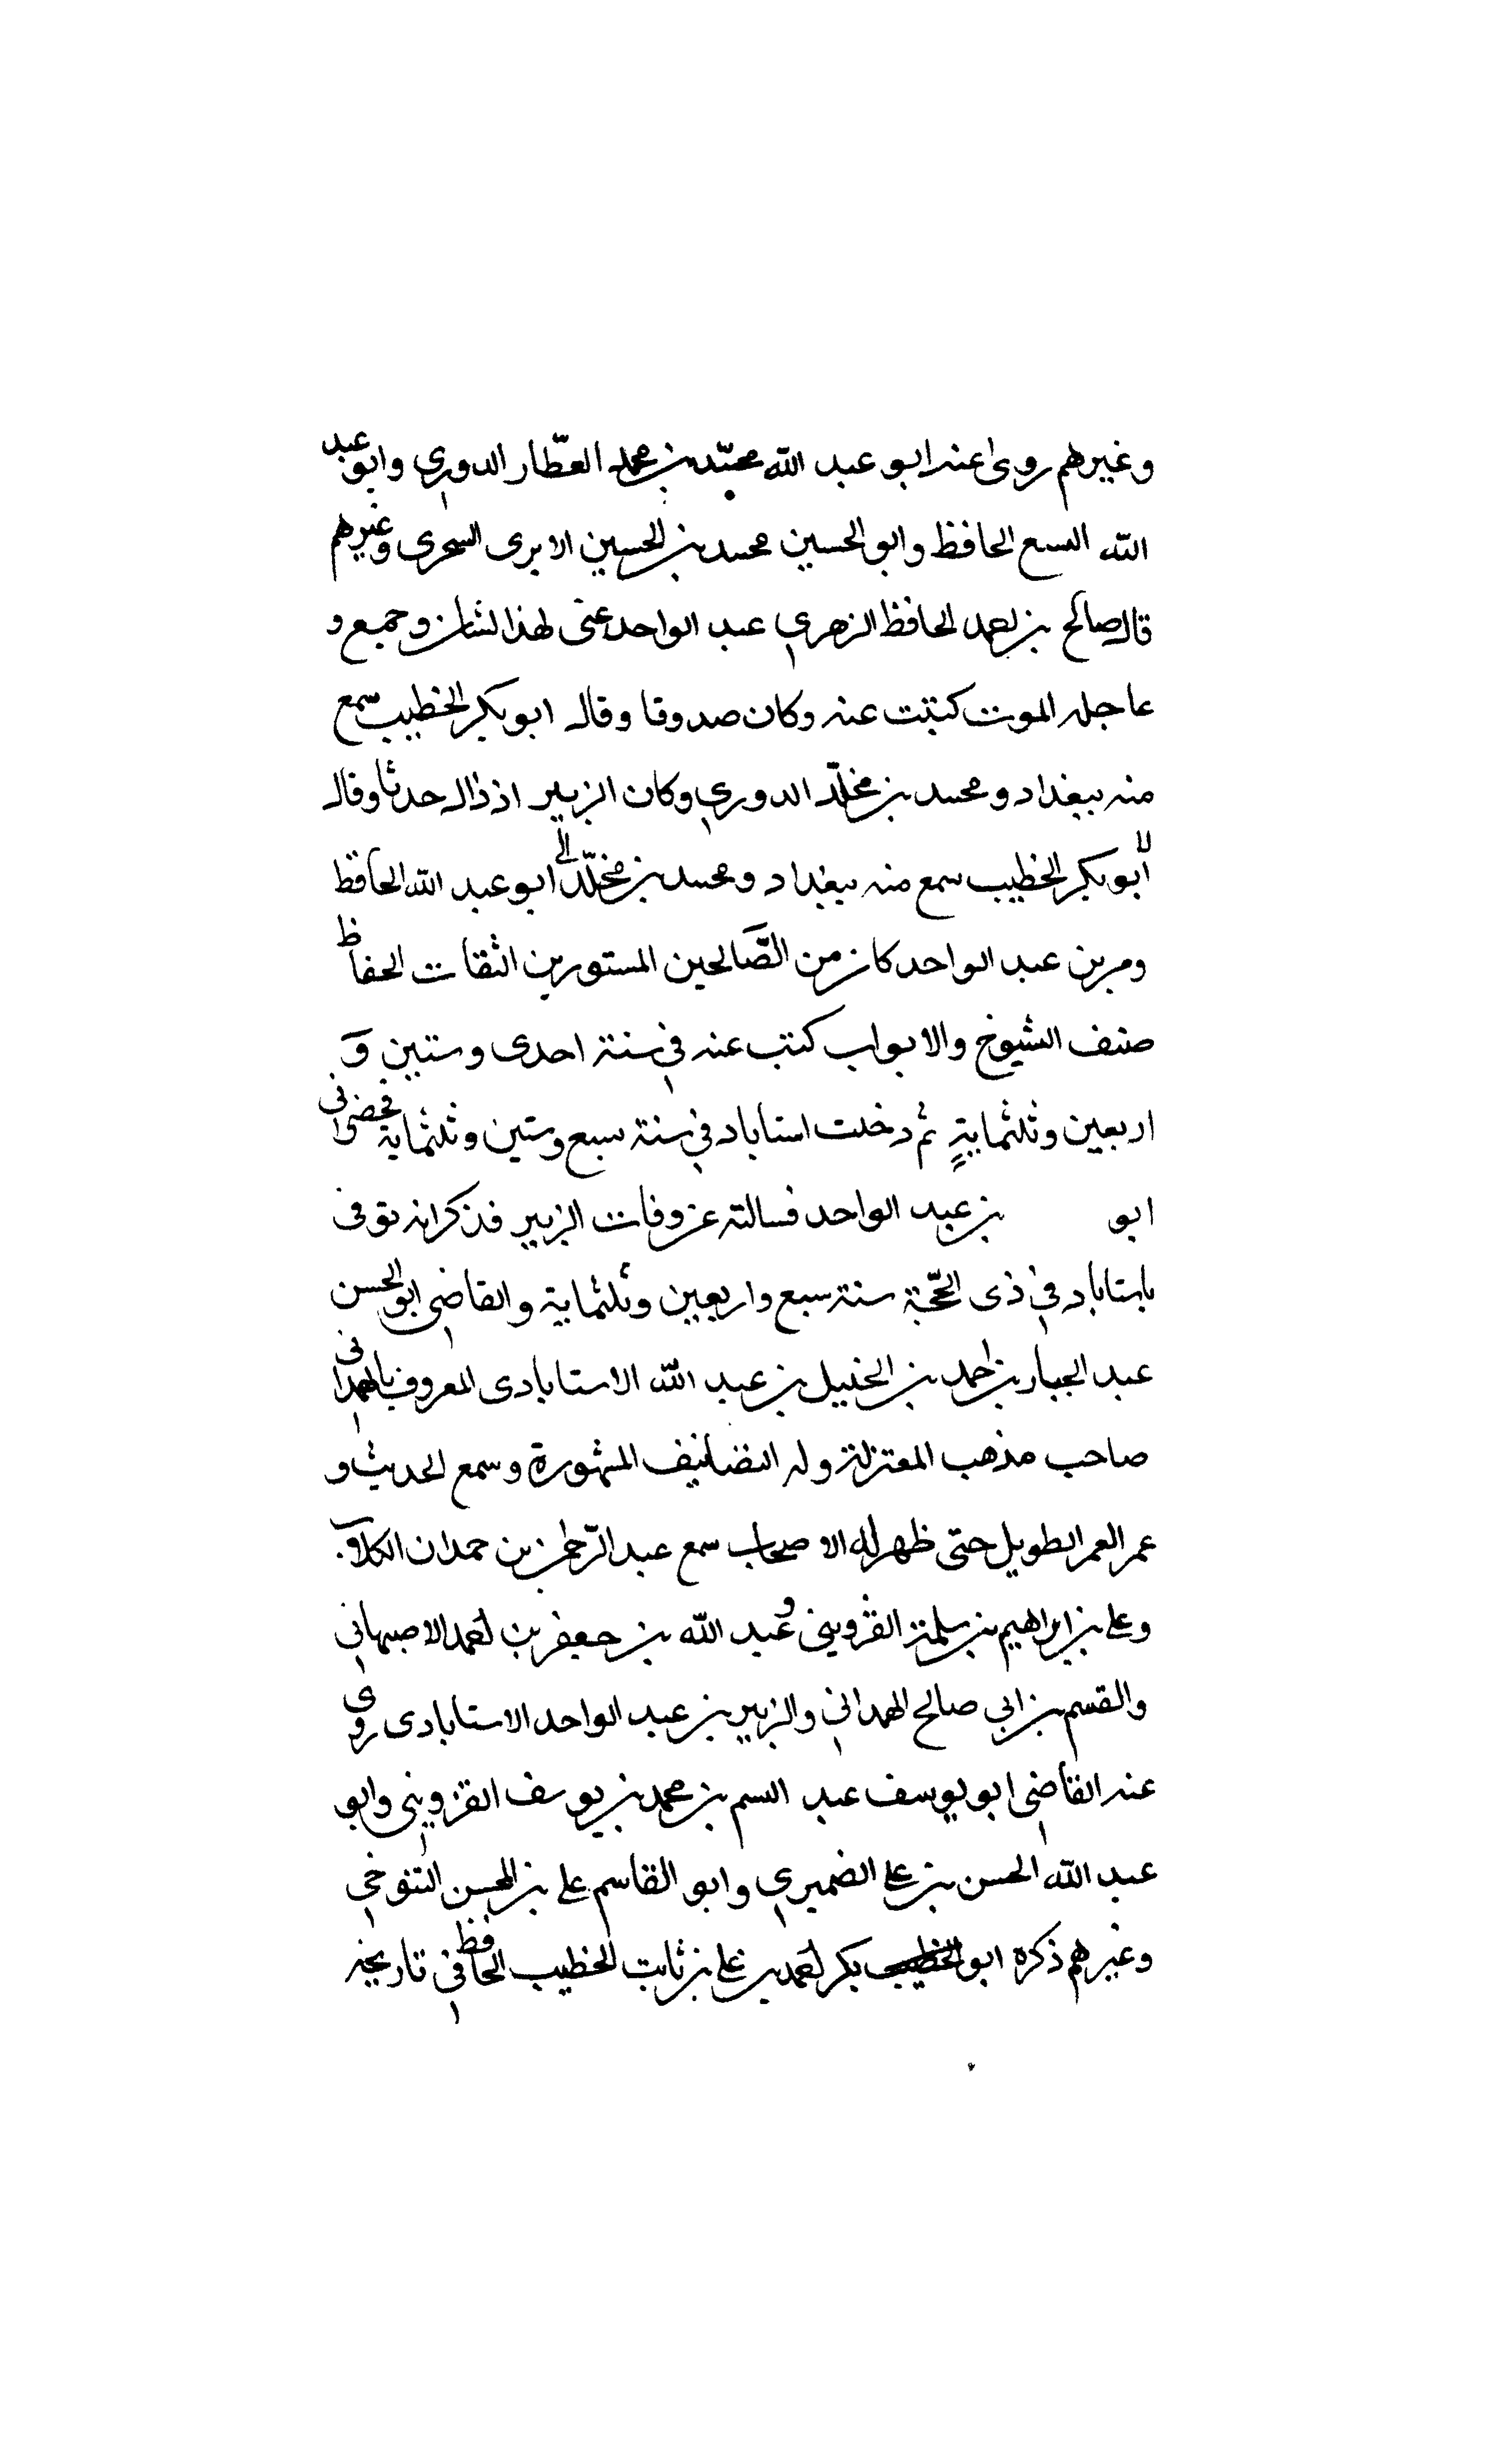 وغيرهم روى عنه ابو عبد الله محمد بن مخلد العطار الدوري وابو عبد
الله البيع الحافظ وابو الحسين محمد بن الحسين الابرى السجزى وغيرهم
قال صالح بن احمد الحافظ الزهري عبد الواحد عنى لهذا الشان وجمع و
عاجله الموت كتبت عنه وكان صدوقا وقال ابو بكر الخطيب سمع
منه ببغداد ومحمد بن مخلّد الدوري وكان الزبير اذ ذاك حدثا وقال
ابو بكر الخطيب سمع منه ببغداد ومحمد بن مخلّد ابو عبد الله الحافظ
بن عبد الواحد كان من الصّالحين المستورين الثقات الحفاظ
صنف الشيوخ والابواب كتب عنه في سنة احدى وستين وَ
اربعين وثلثمايةٍ ثم دخلت استاباد في سنة سبع وستين وثلثماية فحضرانى
ابو بن عبد الواحد فسالته عن وفات الزبير فذكر انه توفى
باستاباد في ذى الحجّة سنة سبع واربعين وثلثماية والقاضي ابو الحسن
عبد الجبار بن احمد بن الخليل بن عبد الله الاستابادى المعروف بالهمدانى
صاحب مذهب المعتزلة وله التصانيف المشهورة وسمع الحديث و
عمر العمر الطويل حتى ظهر له الاصحاب سمع عبد الرّحمن بن حمدان الكلاب
وعلى بن ابراهيم بن سلمة القزويني وعبد الله بن جعفر بن احمد الاصبهاني
والقسم بن ابي صالح الهمداني والزبير بن عبد الواحد الاستابادى روى
عنه القاضي ابو يوسف عبد السم بن محمد بن يوسف القزويني وابو
عبد الله الحسن بن على الضميري وابو القاسم على بن المحسن التنوخي
وغيرهم ذكره ابو الخطيب بكر احمد بن على بن ثابت الخطيب الحافظ في تاريخه